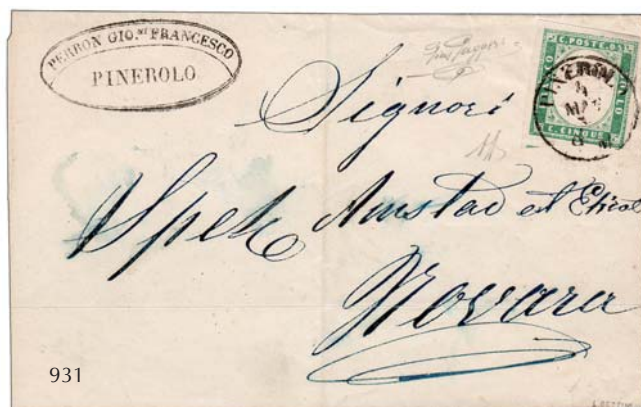 PERRON GIO.NI FRANCESCO
PINEROLO
C. POSTE. 05
BOLLO
C. CINQUE
PINEROLO
MAG
Signori
Spek
Amstad et
Novara
931